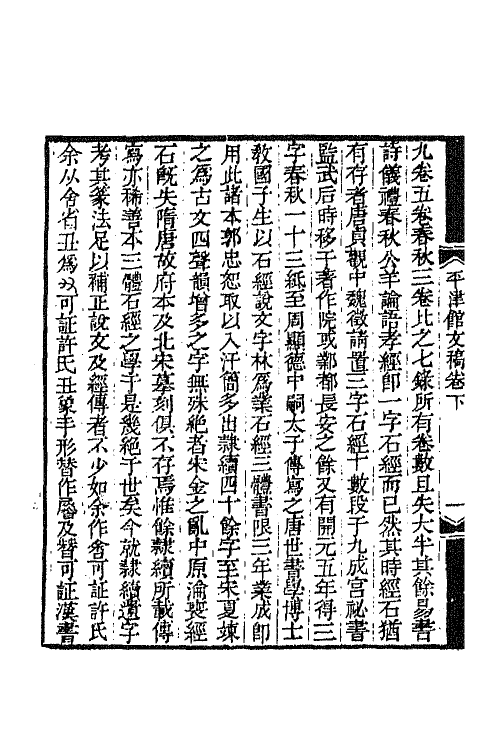 平津館文稿卷下
一
九卷五卷春秋三卷比之七錄所有卷數且失大半其餘易書
詩儀禮春秋公羊論語孝經卽一字石經而已然其時經石猶
有存者唐貞觀中魏徵請置三字石經十數段于九成宮祕書
監武后時移于著作院或鄴都長安之餘又有開元五年得三
字春秋一十三紙至周顯德中嗣太子傳寫之唐世書學博士
敎國子生以石經說文字林爲業石經三體書限三年業成卽
用此諸本郭忠恕取以入汗簡多出隸續四十餘字至宋夏竦
之爲古文四聲韻增多之字無殊絕者宋金之亂中原淪喪經
石旣失隋唐故府本及北宋摹刻俱不存焉惟餘隸續所載傳
寫亦稀善本三體石經之學于是幾絕于世矣今就隸續遺字
考其篆法足以補正說文及經傳者不少如余作舍可証許氏
余从舍省丑爲㕚可証許氏丑象手形替作朁及替可証漢書